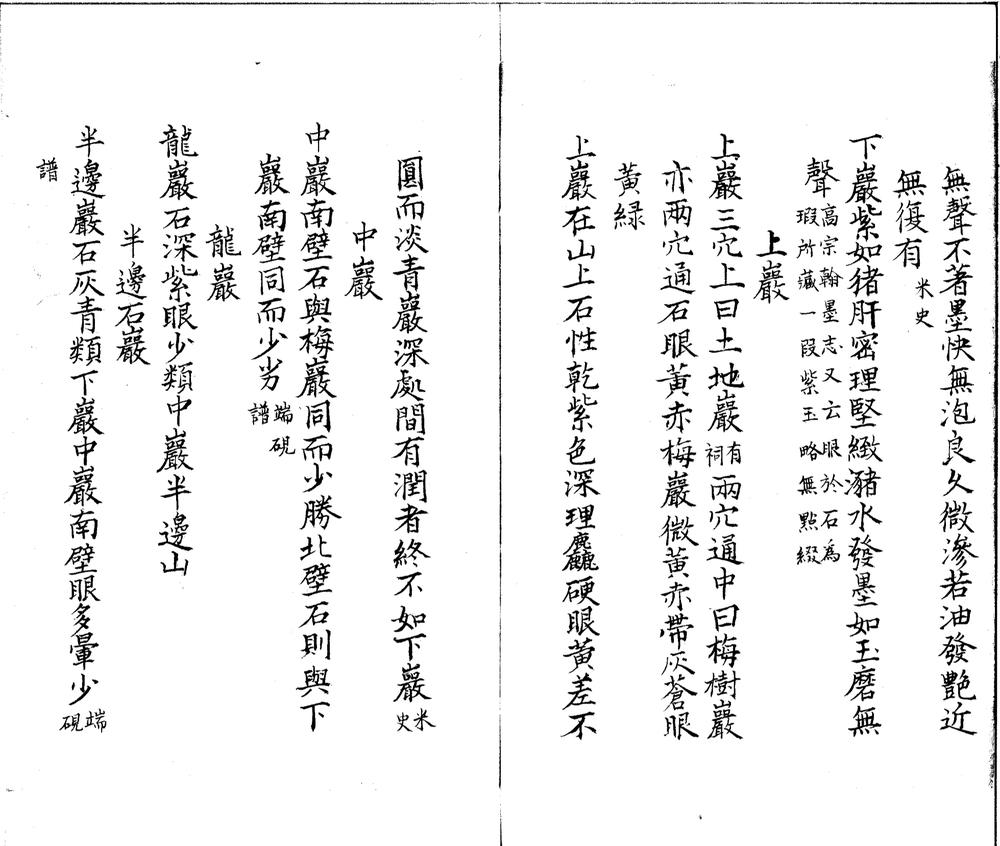 無聲不著墨快無泡良乆微滲若油發艷近
無復有米史
下巖紫如猪肝密理堅緻瀦水發墨如玉磨無
聲高宗翰墨志又云眼於石爲瑕所藏一叚紫玉略無㸃綴
上巖
上巖三穴上曰土地巖有祠兩穴通中曰梅樹巖
亦兩穴通石眼黃赤梅巖微黃赤帶灰蒼眼
黃緑
上巖在山上石性乾紫色深理麤硬眼黃差不
圓而淡青巖深處間有潤者終不如下巖米史
中巖
中巖南壁石與梅巖同而少勝北壁石則與下
巖南壁同而少劣端硯譜
龍巖
龍巖石深紫眼少類中巖半邊山
半邊石巖
半邊巖石灰青類下巖中巖南壁眼多暈少端硯
譜